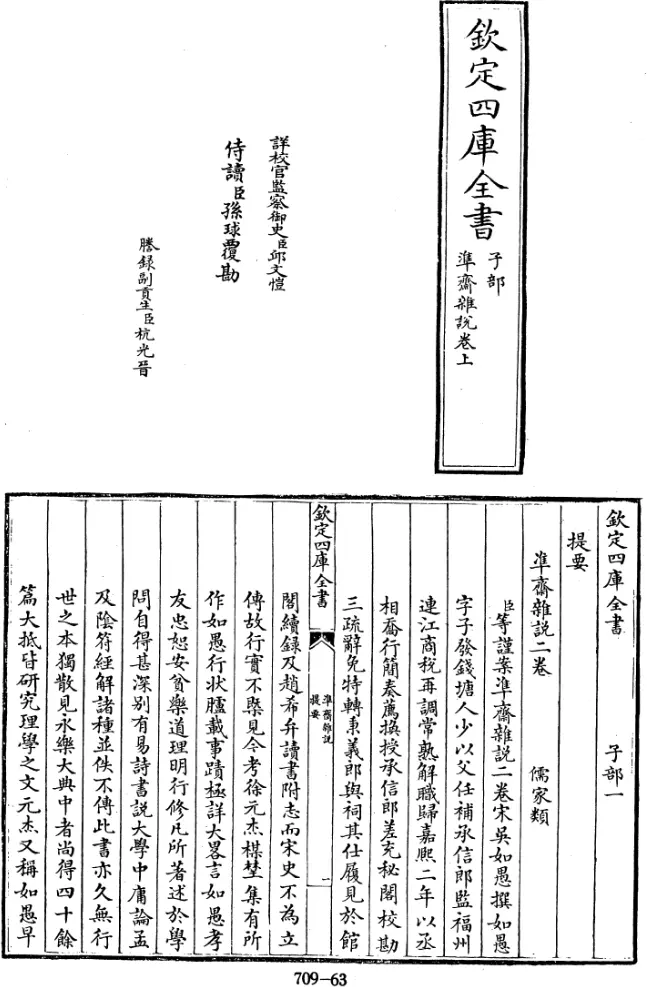 欽定四庫全書
子部
準齋雜說卷上
詳校官監察御史臣邱文愷
侍讀臣孫球覆勘
謄錄副貢生臣杭光晉
欽定四庫全書
子部一
提要
準齋雜說二卷
儒家類
臣等謹案準齋雜說二卷宋吳如愚撰如愚
字子發錢塘人少以父任補承信郎監福州
連江商稅再調常熟解職歸嘉熙二年以丞
相喬行簡奏薦換授承信郎差充秘閣校勘
三疏辭免特轉秉義郎與祠其仕履見於館
欽定四庫全書
準齋雜說
提要
一
閣續錄及趙希弁讀書附志而宋史不為立
傳故行實不槩見今考徐元杰楳埜集有所
作如愚行狀臚載事蹟極詳大畧言如愚孝
友忠恕安貧樂道理明行修凡所著述於學
問自得甚深別有易詩書說大學中庸論孟
及陰符經解諸種並佚不傳此書亦久無行
世之本獨散見永樂大典中者尚得四十餘
篇大抵皆研究理學之文元杰又稱如愚早
709-63